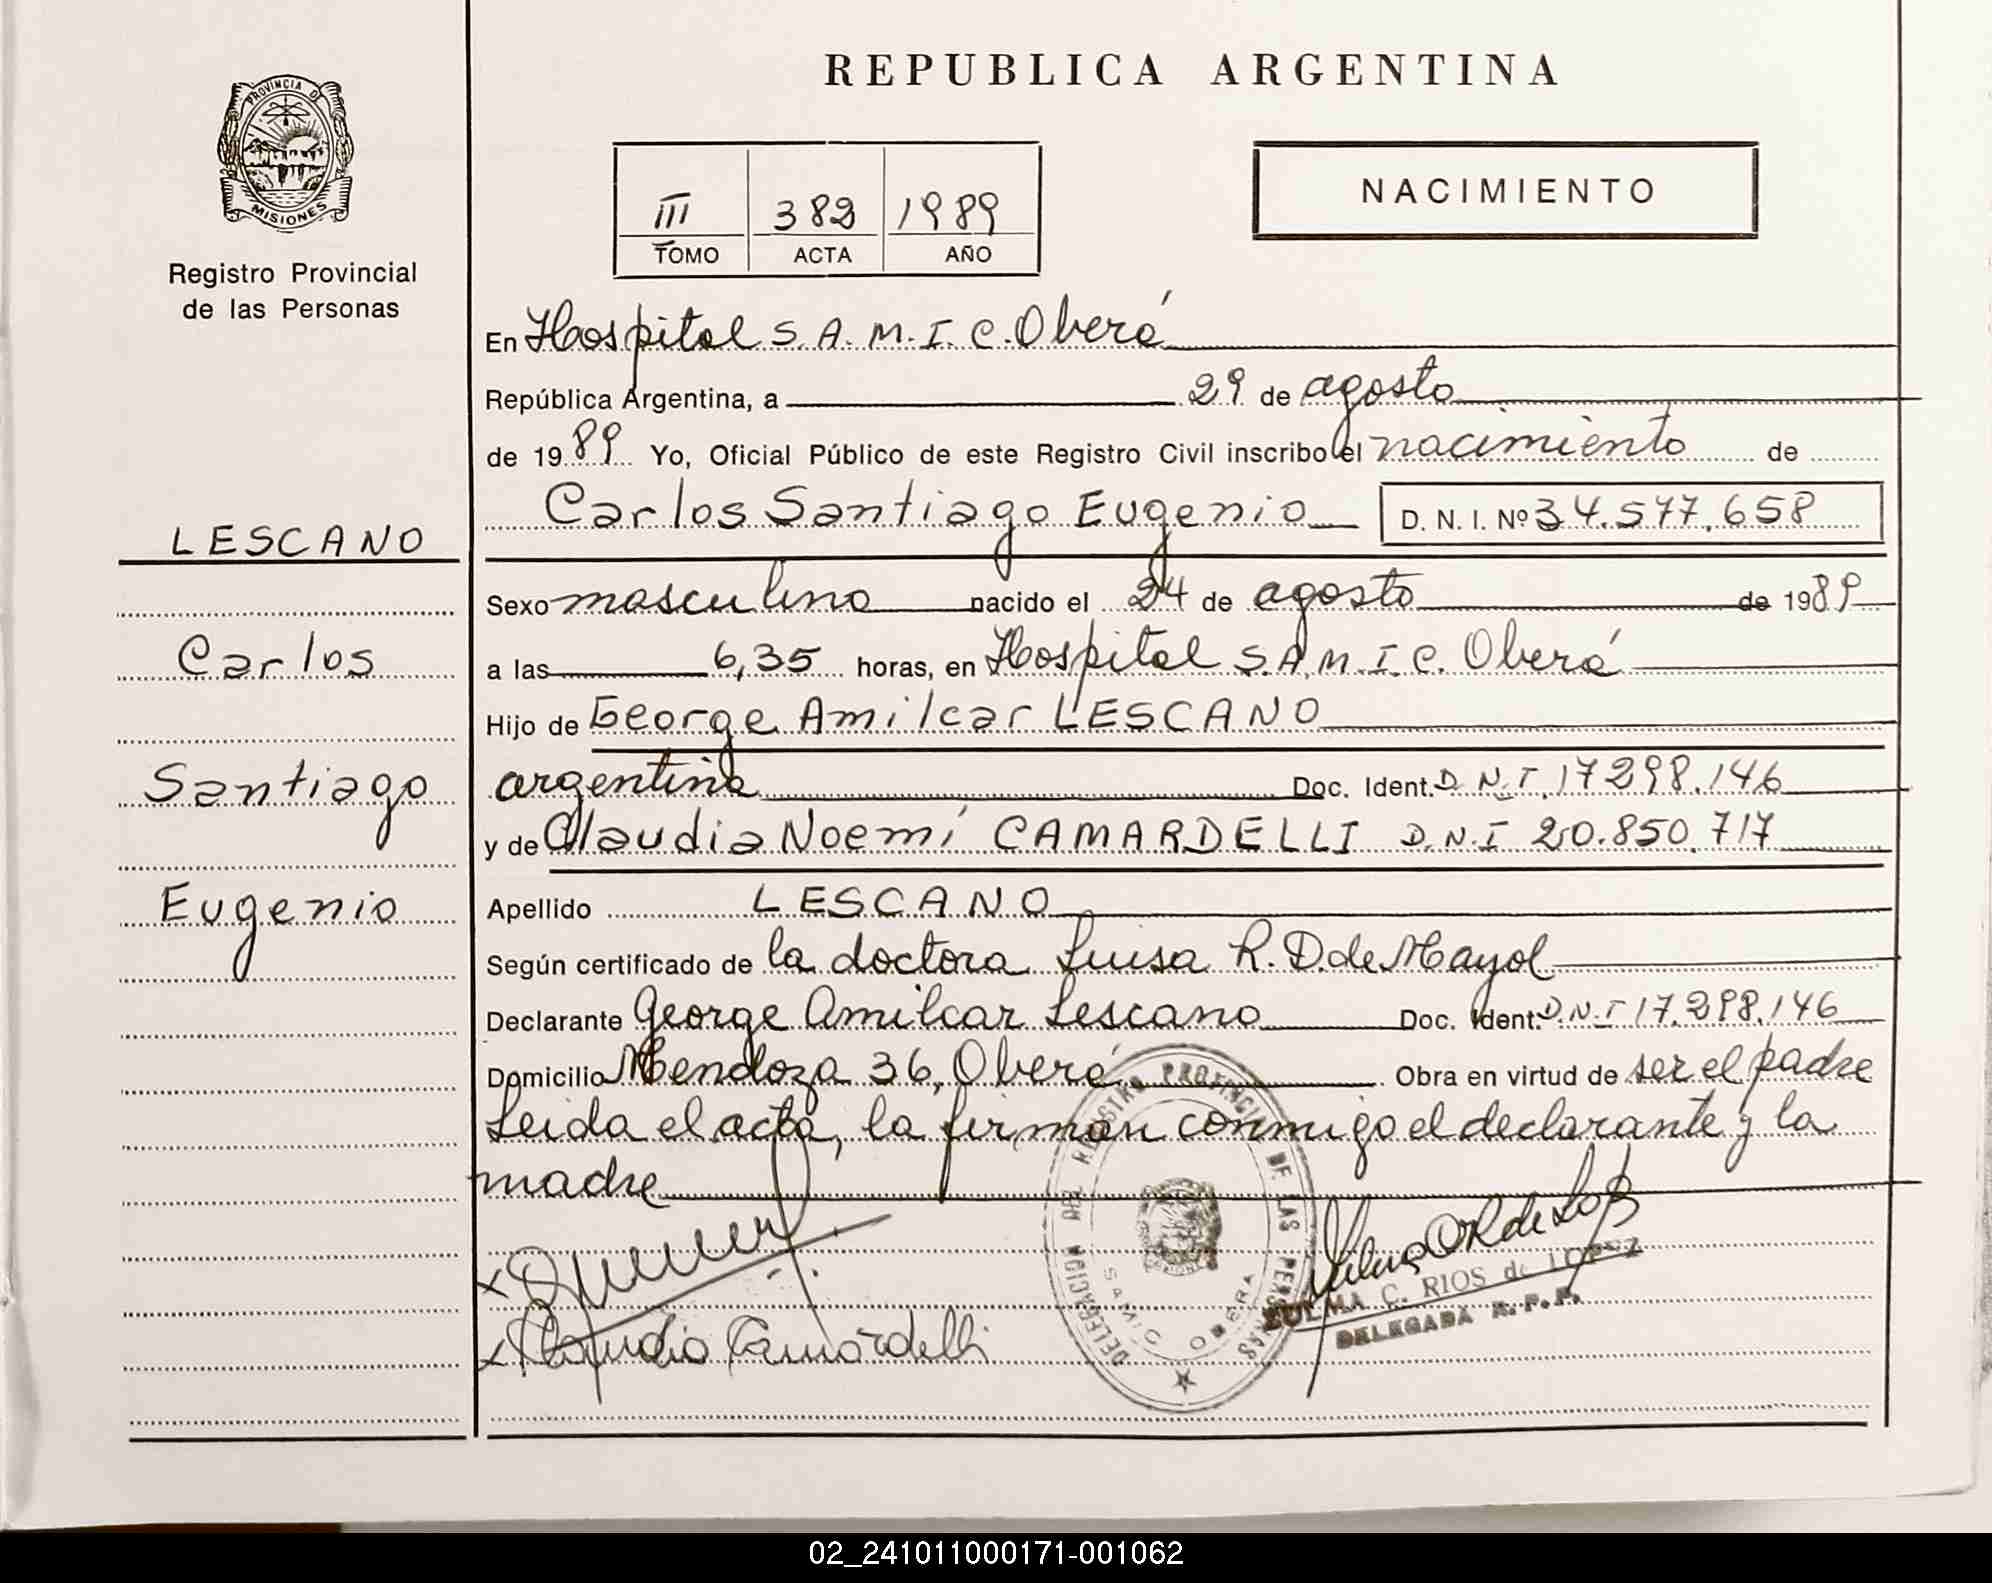 REPUBLICA ARGENTINA
PROVINCIA DE
MISIONES
Registro Provincial
de las Personas
III 382 1989
TOMO ACTA AÑO
NACIMIENTO
En Hospital S.A.M.I.C. Oberá
República Argentina, a 29 de agosto
de 1989 Yo, Oficial Público de este Registro Civil inscribo el nacimiento de
Carlos Santiago Eugenio D. N. I. Nº 34.577.658
LESCANO
Carlos
Santiago
Eugenio
Sexo masculino nacido el 24 de agosto de 1989
a las 6,35 horas, en Hospital S.A.M.I.C. Oberá
Hijo de George Amilcar LESCANO
argentina Doc. Ident. D.N.I. 17298.146
y de Claudia Noemí CAMARDELLI D.N.I 20.850.717
Apellido LESCANO
Según certificado de la doctora Luisa R. D. de Mayol
Declarante George Amilcar Lescano Doc. Ident. D.N.I 17.298.146
Domicilio Mendoza 36, Oberá Obra en virtud de ser el padre
Leida el acta, la firman conmigo el declarante y la
madre
x
x Claudia Camardelli
DELEGACION DEL REGISTRO PROVINCIAL DE LAS PERSONAS
SAMIC OBERA
ZULMA C. RIOS de LOPEZ
DELEGADA R.P.P.
02_241011000171-001062